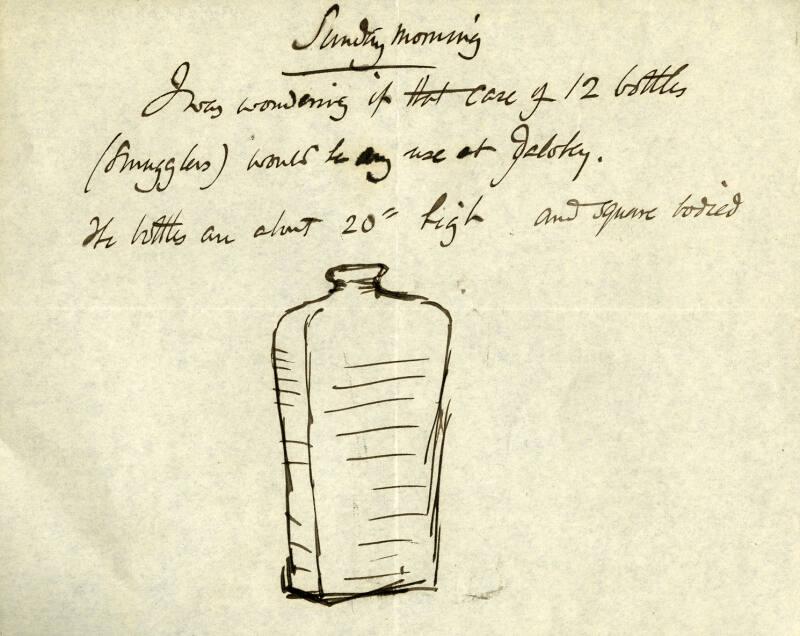 Sunday morning
I was wondering if that case of 12 bottles
(Smugglers) would be any use at
The bottles are about 20" high and square bodied